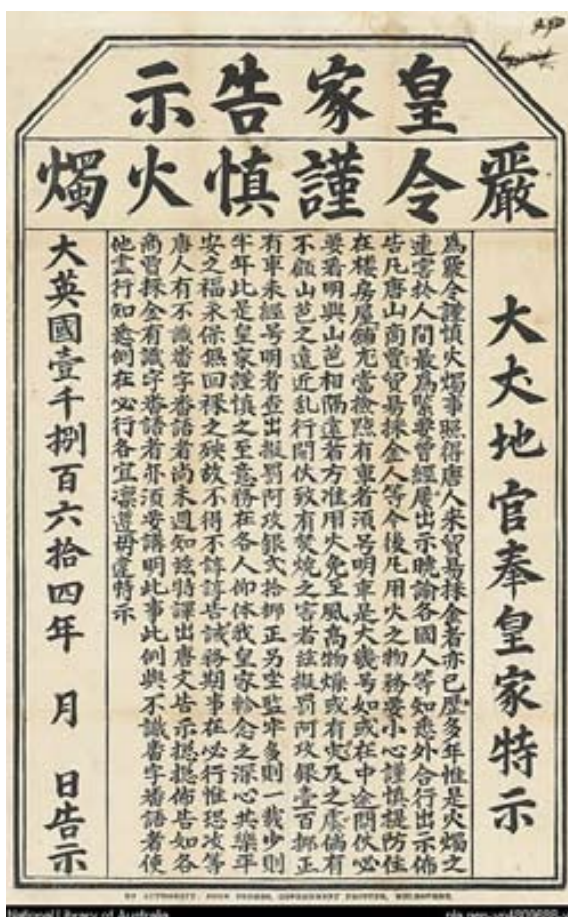 皇家告示
嚴令謹慎火燭
大犬地官奉皇家特示
為嚴令謹慎火燭事照得唐人來貿易採金者亦已歷多年惟是火燭之
連害於人間最為緊要曾經屢出示曉諭各國人等知悉外合行出示佈
告凡唐山商賈貿易採金人等今後凡用火之物務要小心謹慎提防住
在楼房屋舖尤當撿點有車者須号明車是大幾号如或在中途開伏必
要看明與山芭相隔遠者方准用火免至風高物燥或有火及之虞倘有
不顧山芭之遠近乱行開伏致有焚燒之害者茲擬罰阿攻銀壹百挷正
有車未經号明者查出擬罰阿攻銀弍拾挷正另坐監牢多則一載少則
半年此是皇家謹慎之至意務在各人仰体我皇家軫念之深心共樂平
安之福永保無回祿之殃故不得不諄諄告誡務期事在必行惟恐攻等
唐人有不識番字番語者尚未週知茲特譯出唐文告示揔揔佈告如各
商賈採金有識字番語者亦須要講明此事此例與不識番字番語者使
他盡行知悉例在必行各宜凜遵毋違特示
大英國壹千捌百六拾四年 月 日告示
BY AUTHORITY: JOHN FERRES, GOVERNMENT PRINTER, MELBOURNE.
National Library of Australia